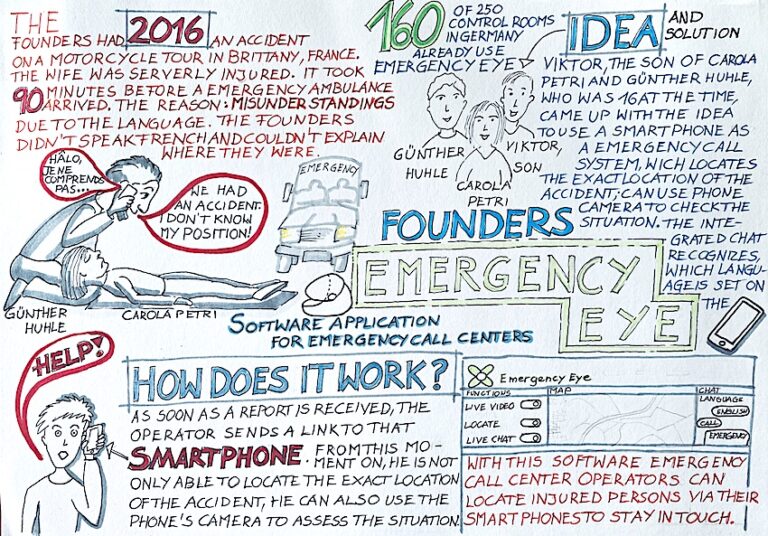 THE
FOUNDERS HAD 2016 AN ACCIDENT
ON A MOTORCYCLE TOUR IN BRITTANY, FRANCE.
THE WIFE WAS SERVERLY INJURED. IT TOOK
90 MINUTES BEFORE A EMERGENCY AMBULANCE
ARRIVED. THE REASON: MISUNDERSTANDINGS
DUE TO THE LANGUAGE. THE FOUNDERS
DIDN'T SPEAK FRENCH AND COULDN'T EXPLAIN
WHERE THEY WERE.
HÂLO,
JE NE
COMPRENDS
PAS...
WE HAD
AN ACCIDENT.
I DON'T KNOW
MY POSITION!
GÜNTHER
HUHLE
CAROLA PETRI
EMERGENCY
160 OF 250
CONTROL ROOMS
IN GERMANY
ALREADY USE
EMERGENCY EYE
GÜNTHER
HUHLE
CAROLA
PETRI
VIKTOR,
SON
FOUNDERS
IDEA AND
SOLUTION
VIKTOR, THE SON OF CAROLA
PETRI AND GÜNTHER HUHLE,
WHO WAS 16 AT THE TIME,
CAME UP WITH THE IDEA
TO USE A SMARTPHONE AS
A EMERGENCY CALL
SYSTEM, WICH LOCATES
THE EXACT LOCATION OF THE
ACCIDENT, CAN USE PHONE
CAMERA TO CHECK THE
SITUATION. THE INTE-
GRATED CHAT
RECOGNIZES,
WHICH LANGU-
AGE IS SET ON
THE
EMERGENCY
EYE
SOFTWARE APPLICATION
FOR EMERGENCY CALL CENTERS
HELP!
HOW DOES IT WORK?
AS SOON AS A REPORT IS RECEIVED, THE
OPERATOR SENDS A LINK TO THAT
SMARTPHONE. FROM THIS MO-
MENT ON, HE IS NOT
ONLY ABLE TO LOCATE THE EXACT LOCATION
OF THE ACCIDENT, HE CAN ALSO USE THE
PHONE'S CAMERA TO ASSESS THE SITUATION.
Emergency Eye
FUNCTIONS
LIVE VIDEO
LOCATE
LIVE CHAT
MAP
CHAT
LANGUAGE
ENGLISH
CALL
EMERGENCY
WITH THIS SOFTWARE EMERGENCY
CALL CENTER OPERATORS CAN
LOCATE INJURED PERSONS VIA THEIR
SMARTPHONES TO STAY IN TOUCH.